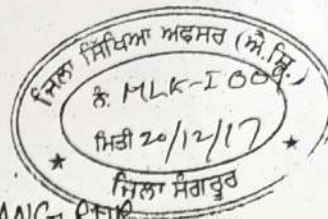 ਜਿਲਾ ਸਿੱਖਿਆ ਅਫਸਰ (ਐ.ਸਿ.)
ਨੰ. MLK-I 00
ਮਿਤੀ 20/12/17
ਜਿਲਾ ਸੰਗਰੂਰ